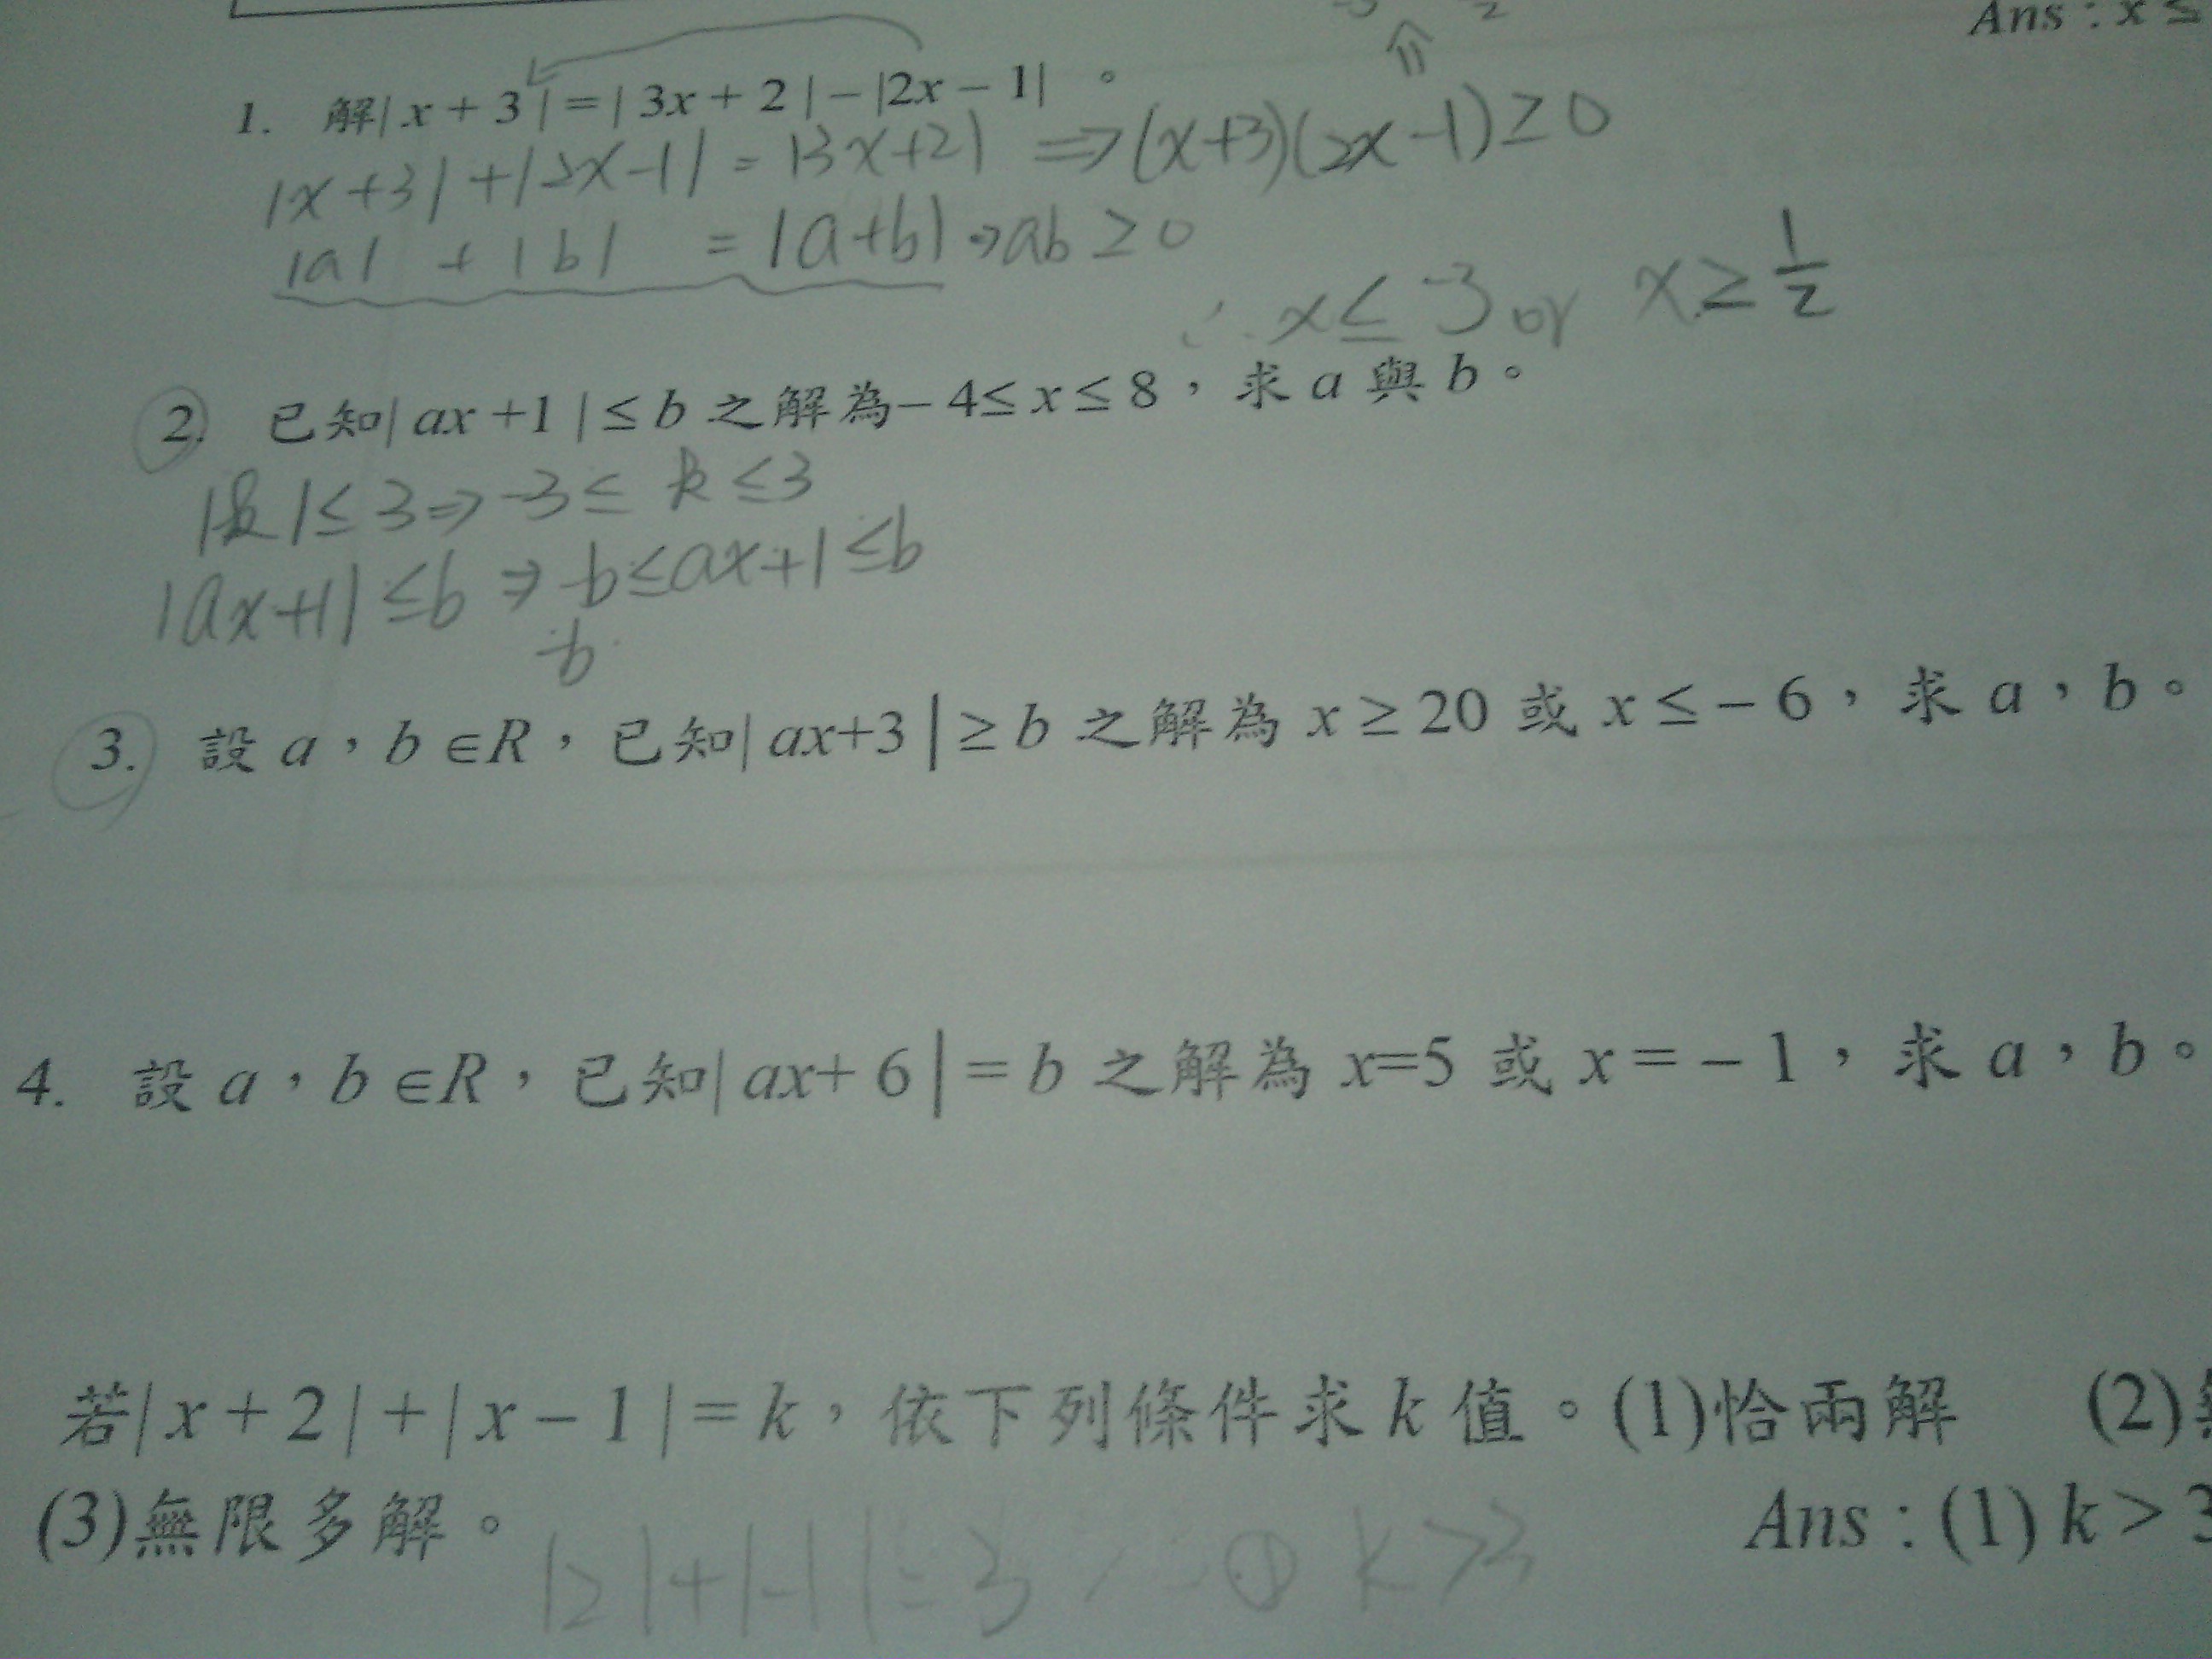 Ans : x ≤
1. 解| x + 3 | = | 3x + 2 | − |2x − 1| 。
|x+3|+|2x-1| = |3x+2| ⇒ (x+3)(2x-1) ≥ 0
|a| + |b| = |a+b| ⇒ ab ≥ 0
∴ x ≤ -3 or x ≥ 1/2
2. 已知| ax +1 | ≤ b 之解為− 4≤ x ≤ 8，求 a 與 b。
|k| ≤ 3 ⇒ -3 ≤ k ≤ 3
|ax+1| ≤ b ⇒ -b ≤ ax+1 ≤ b
-b
3. 設 a，b ∈R，已知| ax+3 | ≥ b 之解為 x ≥ 20 或 x ≤ − 6，求 a，b。
4. 設 a，b ∈R，已知| ax+ 6 | = b 之解為 x=5 或 x = − 1，求 a，b。
若| x + 2 | + | x − 1 | = k，依下列條件求 k 值。(1)恰兩解 (2)
(3)無限多解。 Ans : (1) k > 3
|2|+|-1|=3 ① k>3